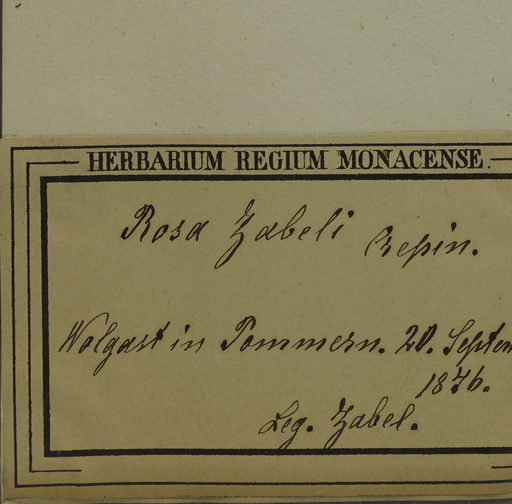 HERBARIUM REGIUM MONACENSE
Rosa Zabeli Crepin.
Wolgast in Pommern. 20. Septem
1876.
Leg. Zabel.